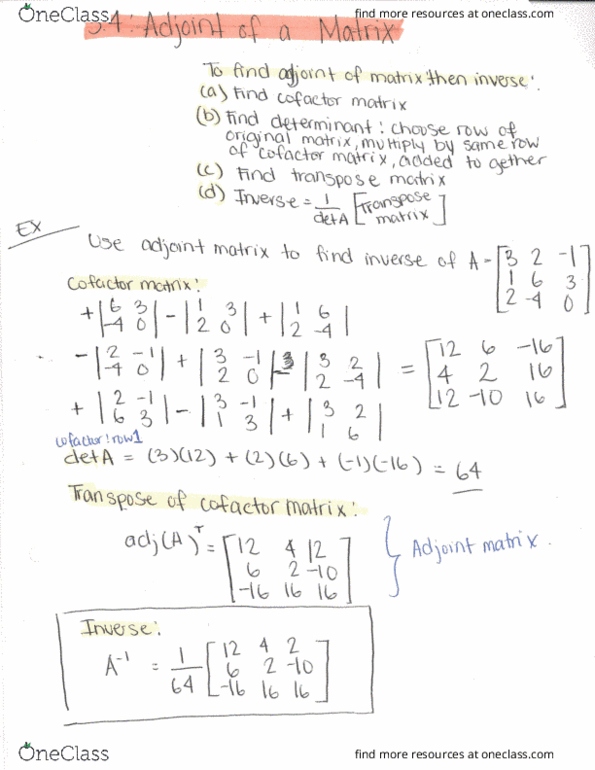 OneClass
find more resources at oneclass.com
3.4: Adjoint of a Matrix
To find adjoint of matrix then inverse:
(a) Find cofactor matrix
(b) Find determinant: choose row of
original matrix, multiply by same row
of cofactor matrix, added to gether
(c) Find transpose matrix
(d) Inverse = 1/detA [Transpose matrix]
EX
Use adjoint matrix to find inverse of A = [3 2 -1
1 6 3
2 -4 0]
Cofactor matrix:
+|6 3| -|1 3| +|1 6|
|-4 0| |2 0| |2 -4|
-|2 -1| +|3 -1| -|3 2|
|-4 0| |2 0| |2 -4|
+|2 -1| -|3 -1| +|3 2|
|6 3| |1 3| |1 6|
= [12 6 -16
4 2 16
12 -10 16]
cofactor: row1
detA = (3)(12) + (2)(6) + (-1)(-16) = 64
Transpose of cofactor matrix:
adj(A)ᵀ = [12 4 12
6 2 -10
-16 16 16]
Adjoint matrix.
Inverse:
A⁻¹ = 1/64 [12 4 2
6 2 -10
-16 16 16]
OneClass
find more resources at oneclass.com